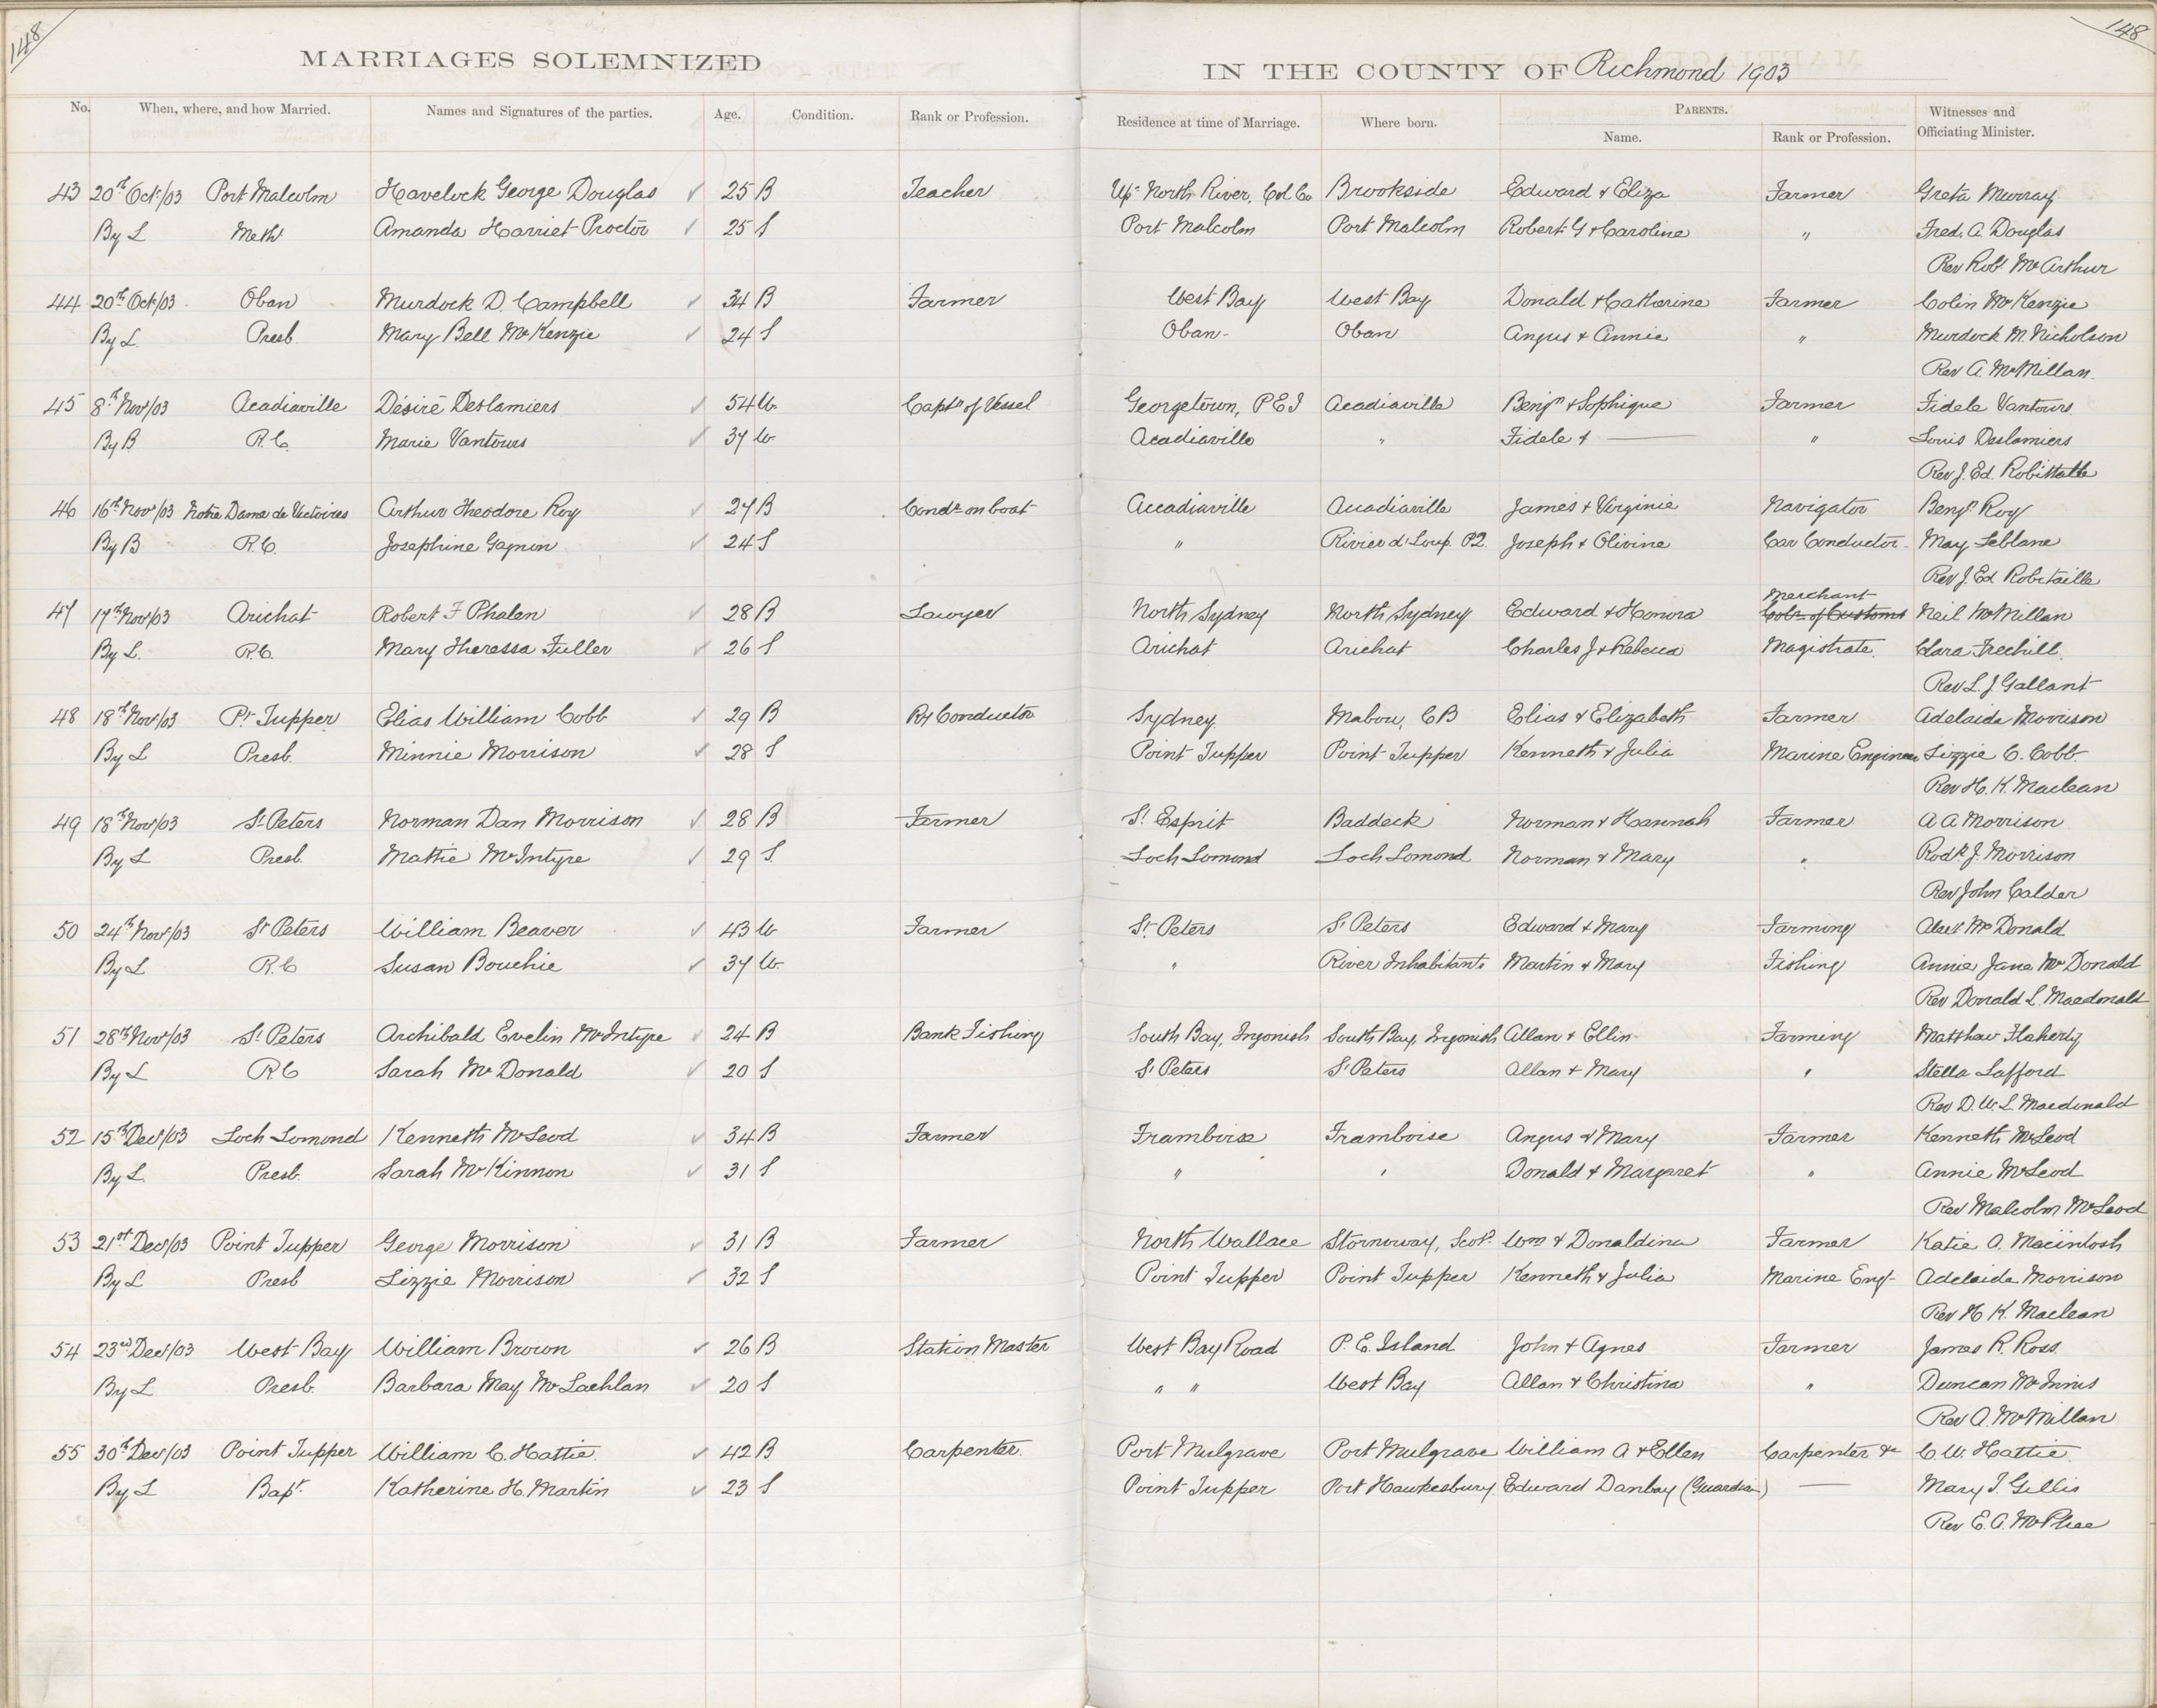 148
148
MARRIAGES SOLEMNIZED IN THE COUNTY OF Richmond 1903
No. When, where, and how Married. Names and Signatures of the parties. Age. Condition. Rank or Profession. Residence at time of Marriage. Where born. PARENTS. Witnesses and
Name. Rank or Profession. Officiating Minister.
43 20th Oct/03 Port Malcolm Havelock George Douglas ✓ 25 B Teacher Up. North River, Col Co Brookside Edward & Eliza Farmer Greta Murray
By L Meth Amanda Harriet Proctor ✓ 25 S Port Malcolm Port Malcolm Robert G & Caroline " Fred. A. Douglas
Rev Robt McArthur
44 20th Oct/03 Oban Murdock D. Campbell ✓ 34 B Farmer West Bay West Bay Donald & Catharine Farmer Colin McKenzie
By L. Presb. Mary Bell McKenzie ✓ 24 S Oban Oban Angus & Annie " Murdock M. Nicholson
Rev A McMillan.
45 8th Nov/03 Acadiaville Désiré Deslamiers ✓ 54 W. Captn of Vessel Georgetown, P E I Acadiaville Benjn & Sophique Farmer Fidele Vantours
By B R.C. Marie Vantours ✓ 37 W. Acadiaville " Fidele & — " Louis Deslamiers
Rev J. Ed. Robittalle
46 16th Nov/03 Notre Dame de Victoires Arthur Theodore Roy ✓ 27 B Condr on boat Accadiaville Accadiaville James & Virginie Navigator Benjn Roy
By B R.C. Josephine Gagnon ✓ 24 S " Rivier d'Loup. P.Q. Joseph & Olivine Car Conductor May Leblanc
Rev J. Ed Robitaille
Merchant
47 17th Nov/03 Arichat Robert F Phalen ✓ 28 B Lawyer North Sydney North Sydney Edward & Honora Colr of Customs Neil McMillan
By L. R.C. Mary Theressa Fuller ✓ 26 S Arichat Arichat Charles J & Rebecca Magistrate. Clara Frechill.
Rev L. J Gallant
48 18th Nov/03 Pt Tupper Elias William Cobb ✓ 29 B Ry Conductor Sydney. Mabou, C B Elias & Elizabeth Farmer Adelaide Morrison
By L Presb. Minnie Morrison ✓ 28 S Point Tupper Point Tupper Kenneth & Julia Marine Engineer Lizzie C. Cobb.
Rev H. K. Maclean
49 18th Nov/03 St Peters Norman Dan Morrison ✓ 28 B Farmer St. Esprit Baddeck Norman & Hannah Farmer A A Morrison
By L Presb. Mattie McIntyre ✓ 29 S. Loch Lomond Loch Lomond Norman & Mary " Rodk J. Morrison
Rev John Calder
50 24th Nov/03 St Peters William Beaver ✓ 43 W Farmer St. Peters St Peters Edward & Mary Farming Alex McDonald
By L R.C Susan Bouchie ✓ 37 W. " River Inhabitants Martin & Mary Fishing Annie Jane McDonald
Rev Donald L. Macdonald
51 28th Nov/03 St Peters Archibald Evelin McIntyre ✓ 24 B Bank Fishing South Bay, Ingonish South Bay, Ingonish Allan & Ellin Farming Matthew Flaherty
By L R.C Sarah McDonald ✓ 20 S St Peters St Peters Allan & Mary " Stella Lafford
Rev D. W. L. Macdonald
52 15th Dec/03 Loch Lomond Kenneth McLeod ✓ 34 B Farmer Framboise Framboise Angus & Mary Farmer Kenneth McLeod
By L. Presb. Sarah McKinnon ✓ 31 S " " Donald & Margaret " Annie McLeod
Rev Malcolm McLeod
53 21st Dec/03 Point Tupper George Morrison ✓ 31 B Farmer North Wallace Stornoway, Scot. Wm & Donaldina Farmer Katie O. Macintosh
By L Presb Lizzie Morrison ✓ 32 S Point Tupper Point Tupper Kenneth & Julia Marine Eng. Adelaide Morrison
Rev H K. Maclean
54 23rd Dec/03 West Bay William Brown ✓ 26 B Station Master West Bay Road P. E. Island John & Agnes Farmer James R. Ross
By L Presb. Barbara May McLachlan ✓ 20 S " " West Bay Allan & Christina " Duncan McInnis
Rev A. McMillan
55 30th Dec/03 Point Tupper William C. Hattie. ✓ 42 B. Carpenter. Port Mulgrave Port Mulgrave William A & Ellen Carpenter &c C. W. Hattie.
By L Bapt. Katherine H. Martin ✓ 23 S Point Tupper Port Hawkesbury Edward Danbay (Guardian) — Mary J. Gillis
Rev E. A. McPhee